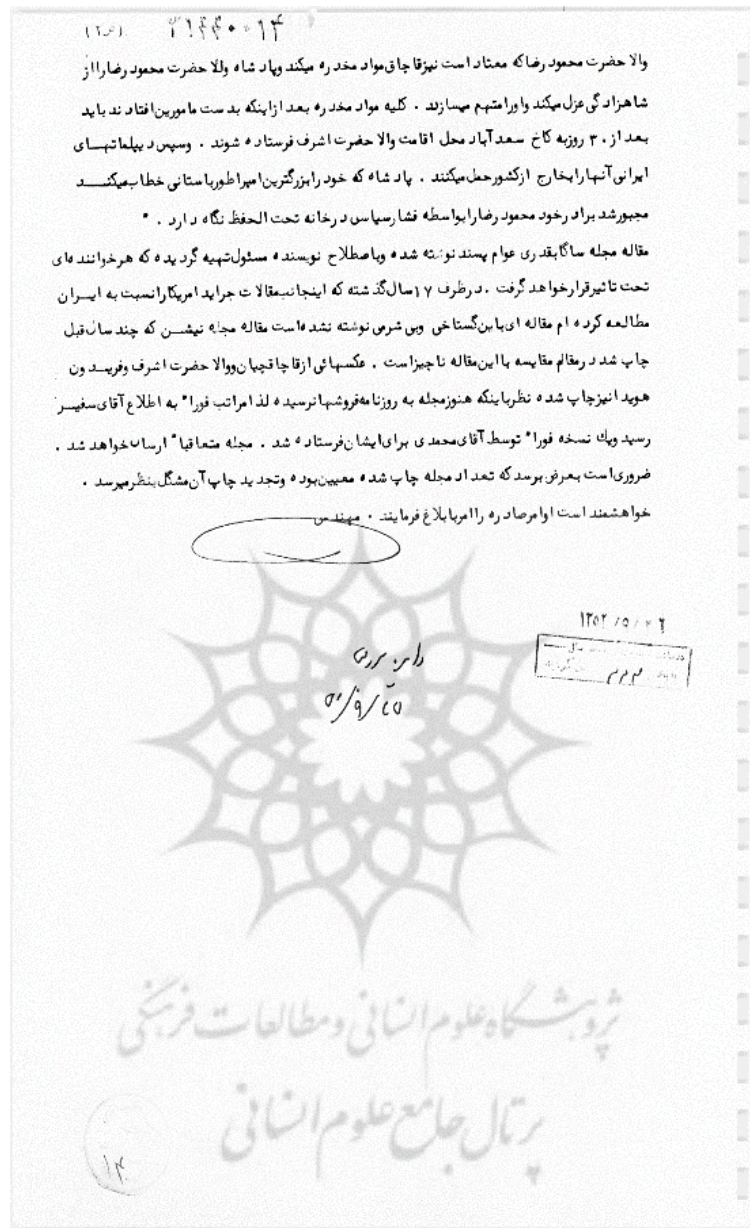 (ص۲)
والا حضرت محمود رضا که معتاد است نیز قاچاق مواد مخدره میکند و پاد شاه والا حضرت محمود رضا را از
شاهزادگی عزل میکند و او را متهم میسازند . کلیه مواد مخدره بعد از اینکه بدست مامورین افتادند باید
بعد از ۳۰ روز به کاخ سعد آباد محل اقامت والا حضرت اشرف فرستاده شوند . و سپس دیپلماتهای
ایرانی آنها را بخارج از کشور حمل میکنند . پاد شاه که خود را بزرگترین امپراطور باستانی خطاب میکند
مجبور شد برادر خود محمود رضا را بواسطه فشار سیاسی در خانه تحت الحفظ نگاه دارد . "
مقاله مجله ساگا بقدری عوام پسند نوشته شده و باصطلاح نویسنده مسئول تهیه گردیده که هر خواننده ای
تحت تاثیر قرار خواهد گرفت . در ظرف ۱۷ سال گذشته که اینجانب مقالات جراید امریکا را نسبت به ایران
مطالعه کرده ام مقاله ای باین گستاخی و بی شرمی نوشته نشده است مقاله مجله نیشن که چند سال قبل
چاپ شد در مقام مقایسه با این مقاله ناچیز است . عکسهائی از قاچاقچیان و والا حضرت اشرف و فریدون
هویدا نیز چاپ شده نظر باینکه هنوز مجله به روزنامه فروشها نرسیده لذا مراتب فورا" به اطلاع آقای سفیر
رسید ویك نسخه فورا" توسط آقای محمدی برای ایشان فرستاده شد . مجله متعاقبا" ارسال خواهد شد .
ضروری است بعرض برسد که تعداد مجله چاپ شده معین بوده و تجدید چاپ آن مشگل بنظر میرسد .
خواهشمند است اوامر صادره را امر بابلاغ فرمایند . مهندس
پژوهشگاه علوم انسانی و مطالعات فرهنگی
پرتال جامع علوم انسانی
۱۴